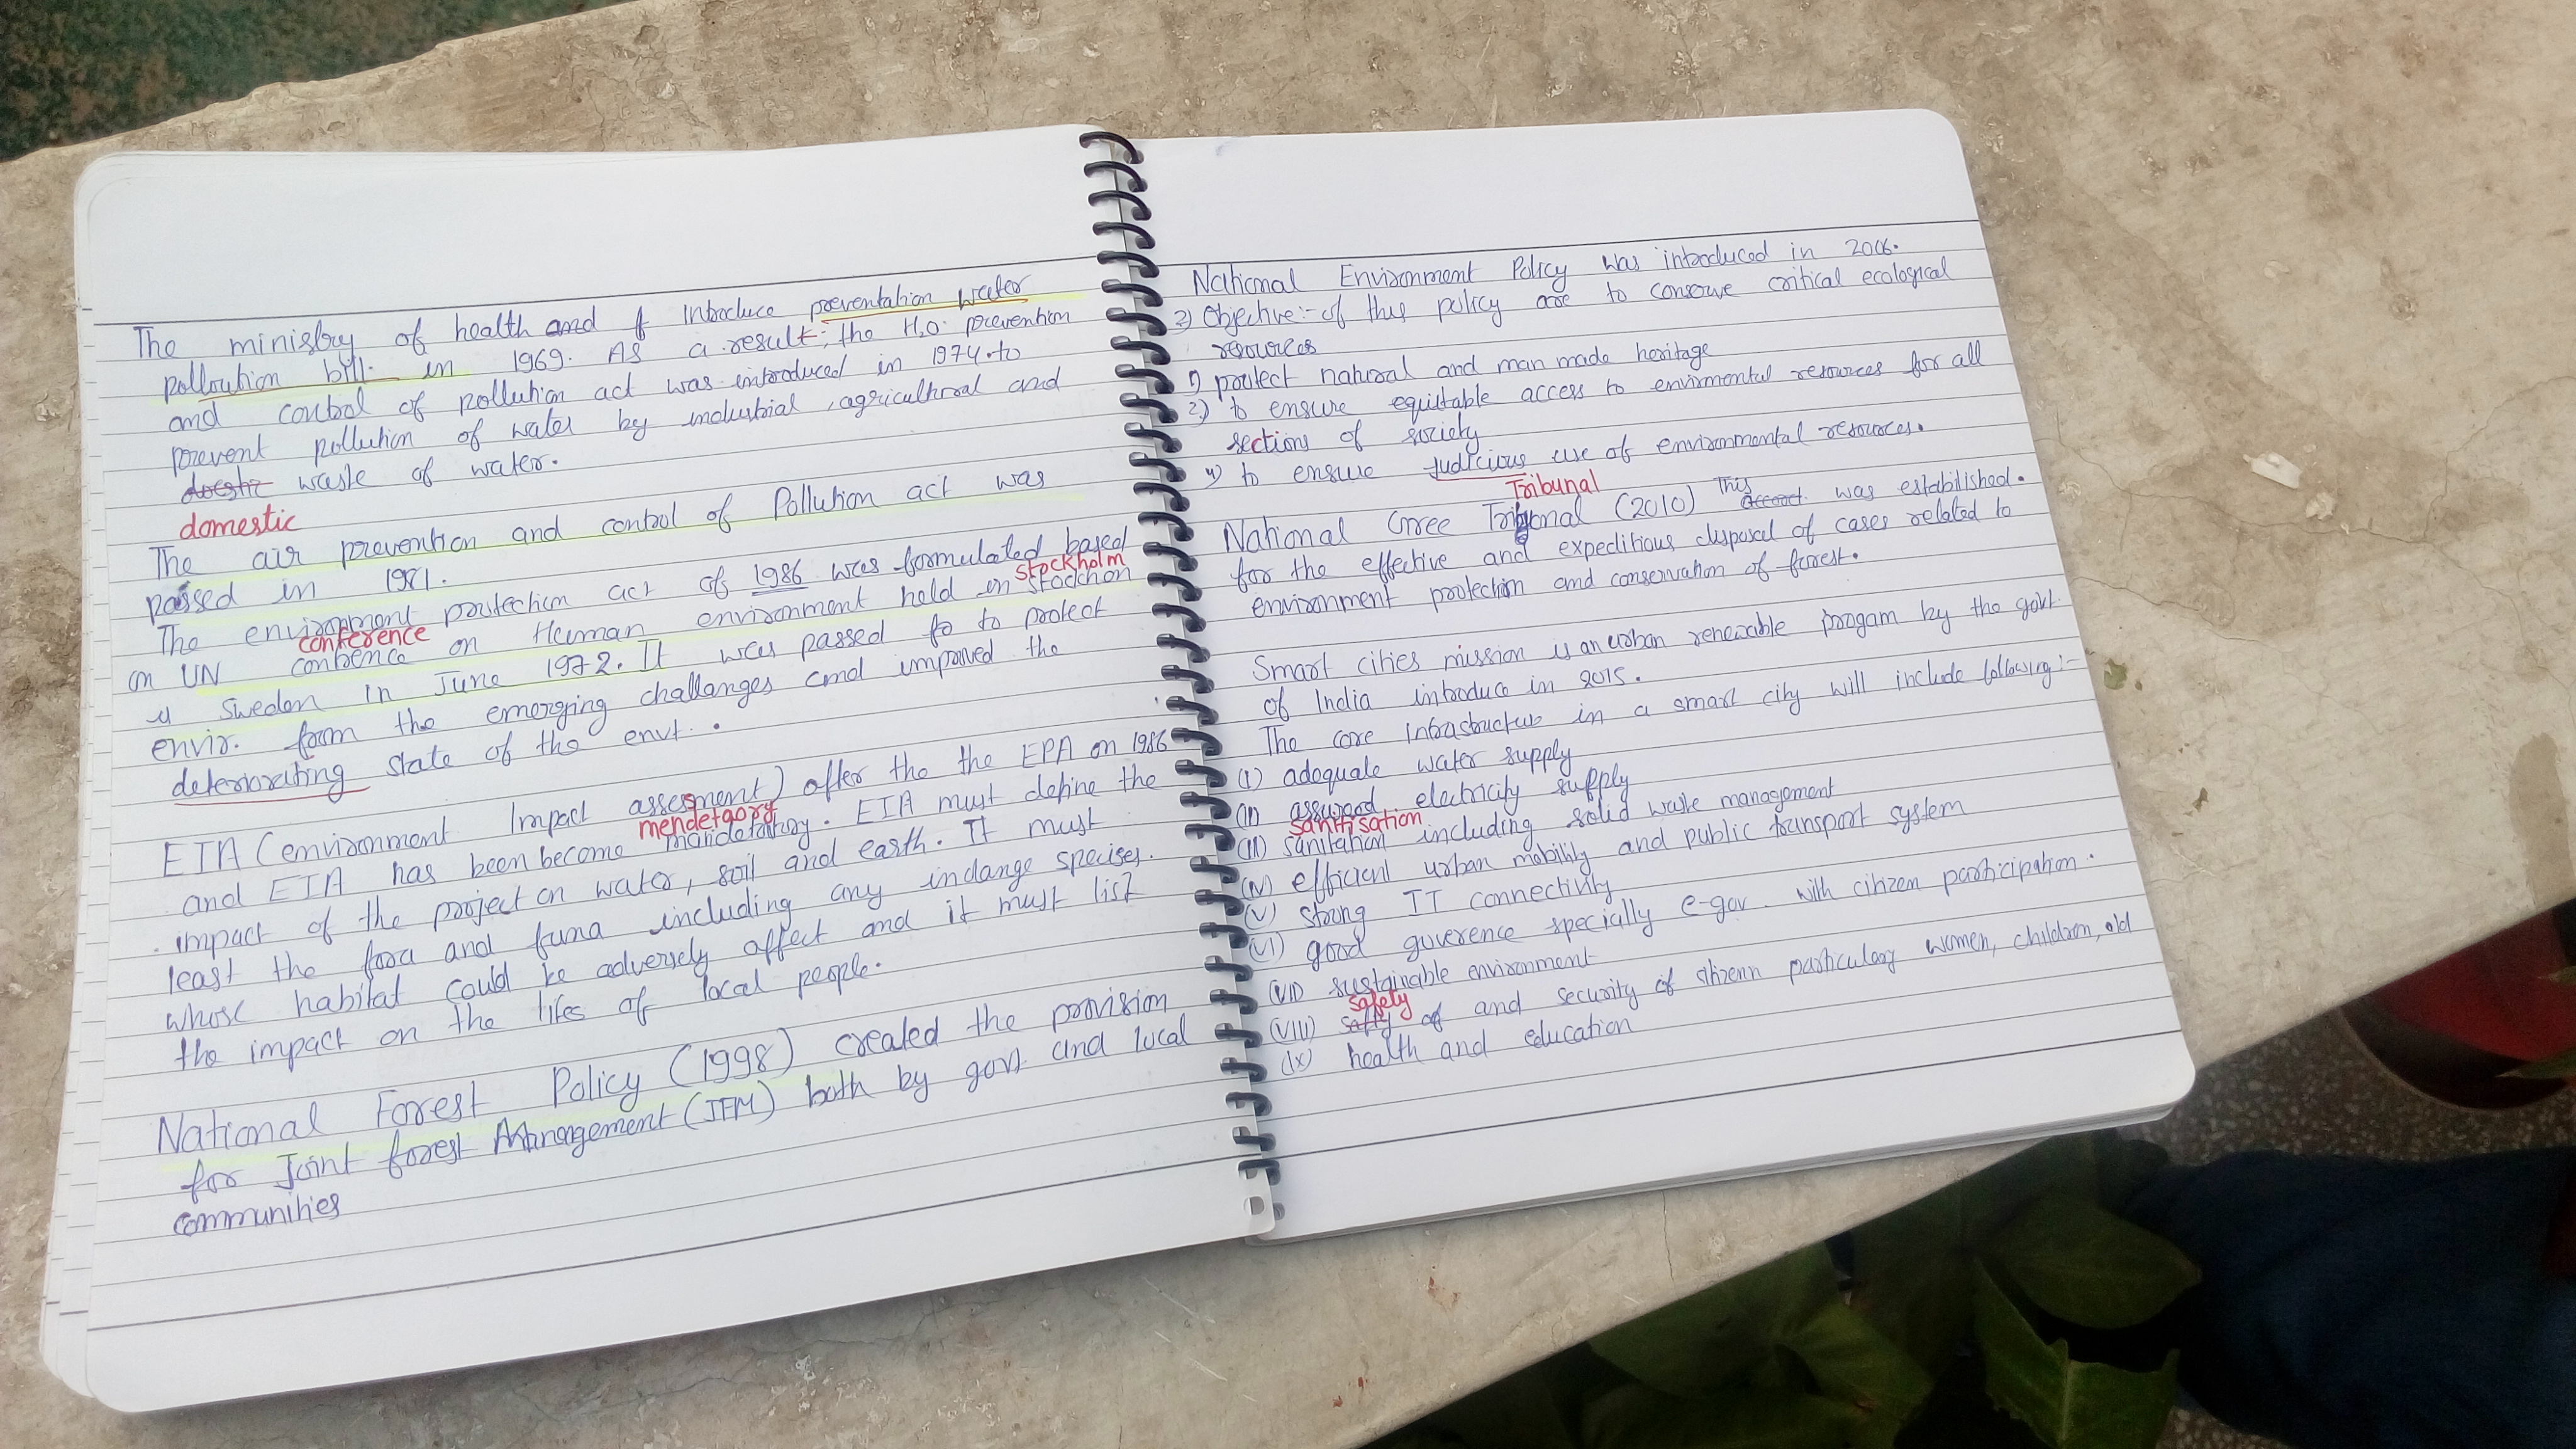 The ministry of health and f Introduce preventation water
polloution bill. in 1969. As a result, the H2O prevention
and control of pollution act was introduced in 1974 to
prevent pollution of water by industrial, agricultural and
doestic waste of water.
domestic
The air prevention and control of Pollution act was
passed in 1981.
The environment protection act of 1986 was formulated based
stockholm
conference
on UN conbrence on Human environment held in stockhon
Sweden in June 1972. It was passed fo to protect
envir. from the emerging challanges and improved the
deteriorating state of the envt.
EIA (environment Impact assessment) after the the EPA on 1986
mendetgory
and EIA has been become . EIA must define the
impact of the project on water, soil and earth. It must
least the fora and funa including any indange speises.
whose habitat could be adversely affect and it must list
the impact on the lifes of local people.
National Forest Policy (1998) created the provision
for Joint forest Management (JFM) both by govt and local
communities
National Environment Policy was introduced in 2006.
Objective:- of this policy are to conserve critical ecological
resources
1) protect natural and man made heritage
2) to ensure equitable access to envirmental resources for all
sections of society
4) to ensure judicious use of environmental resources.
Tribunal
National Gree Tribunal (2010) This was estabilished.
for the effective and expeditious disposal of cases related to
environment protection and conservation of forest.
Smart cities mission is an urban renewable progam by the govt.
of India introduce in 2015.
The core infrastructure in a smart city will include following:-
(I) adequate water supply
(II) assurand, electricity supply
sanitisation
(III) sanitation including solid waste management
(IV) efficient urban mobility and public transport system
(V) strong IT connectivity
(VI) good guverence specially e-gov. with citizen participation.
(VII) sustainable environment
safety
(VIII) safty of and security of citizenn particulary women, children, old
(IX) health and education